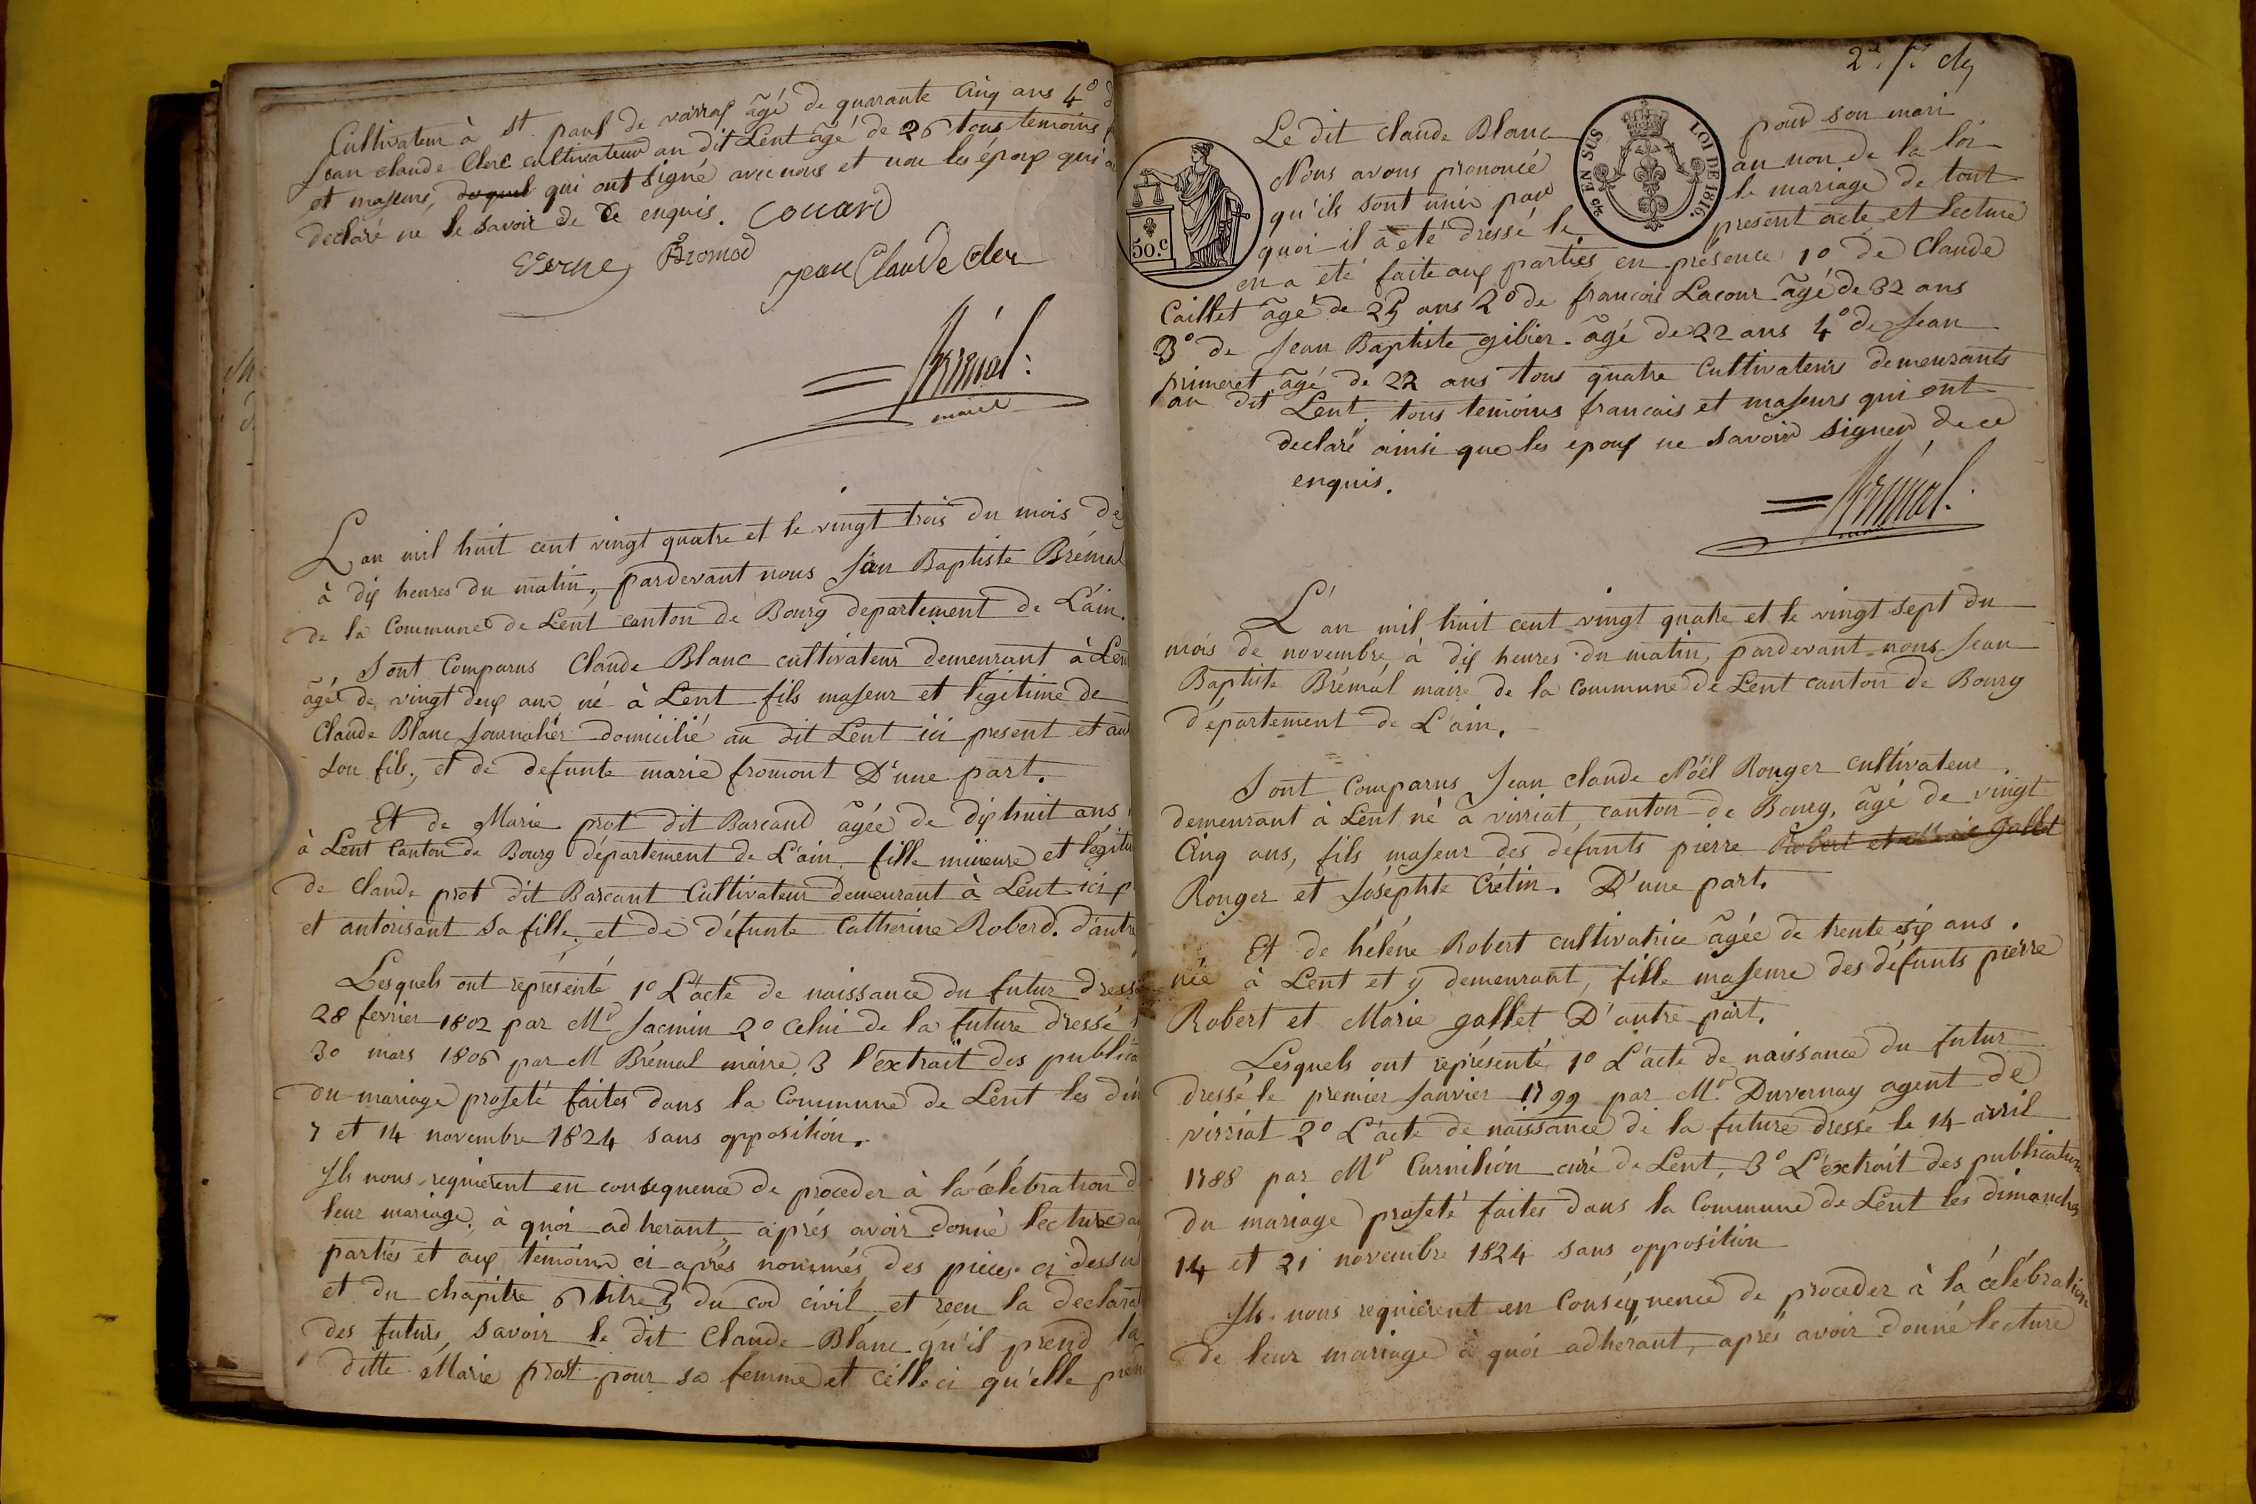 Cultivateur à St. paul de varrax âgé de quarante Cinq ans 4°
Jean claude Clerc cultivateur au dit Lent âgé de 26 tous temoins
et majeurs, qui ont signé avec nous et non les époux qui
declaré ne le savoir de ce enquis. Couard
Verne Bromod
jean Claude Clerc
Brémal:
maire
L'an mil huit cent vingt quatre et le vingt trois du mois de
à dix heures du matin, pardevant nous Jean Baptiste Brémal
de la Commune de Lent canton de Bourg departement de L'ain.
Sont Comparus Claude Blanc cultivateur demeurant à Lent
âgé de vingt deux ans né à Lent fils majeur et légitime de
Claude Blanc Journalier domicilié au dit Lent ici present et
son fils, et de defunte marie fromont D'une part.
Et de Marie prot dit Barcand âgée de dix huit ans
à Lent Canton de Bourg département de L'ain, fille mineure et légiti
de claude prot dit Barcant Cultivateur demeurant à Lent ici p
et autorisant sa fille, et de défunte Catherine Roberd. d'autre
Lesquels ont représenté 1° L'acte de naissance du futur dressé
28 fevrier 1802 par Mr Jacmin 2° celui de la future dressé
30 mars 1806 par M Brémal maire, 3 l'extrait des publica
du mariage projeté faites dans la Commune de Lent les dim
7 et 14 novembre 1824 sans opposition.
Ils nous requièrent en consequence de proceder à la célébration d
leur mariage, à quoi adherant, après avoir donné lecture a
parties et aux témoins ci-après nommés, des pieces ci dessu
et du chapitre 6 titre 5 du cod civil, et reçu la declara
des futurs, savoir le dit Claude Blanc qu'il prend la
ditte Marie prot pour sa femme et celle ci qu'elle pren
2d. f.
Le dit claude Blanc pour son mari
Nous avons prononcé au non de la loi
qu'ils sont unis par le mariage de tout
quoi il a été dressé le present acte et lecture
en a été faite aux parties en présence 1° de Claude
Caillet âgé de 25 ans 2° de francois Lacour âgé de 32 ans
3° de Jean Baptiste gibier âgé de 22 ans 4° de Jean
primeret âgé de 22 ans tous quatre Cultivateurs demeurants
au dit Lent, tous temoins francais et majeurs qui ont
declaré ainsi que les epoux ne savoir signer de ce
enquis.
50.c
EN SUS
LOI DE 1816.
Brémal.
L'an mil huit cent vingt quatre et le vingt sept du
mois de novembre à dix heures du matin, pardevant nous Jean
Baptiste Brémal maire de la commune de Lent canton de Bourg
département de L'ain.
Sont Comparus Jean claude Nöël Rouger cultivateur
demeurant à Lent né à virriat, canton de Bourg, âgé de vingt
Cinq ans, fils majeur des défunts pierre Robert et Marie Gallet
Rouger et Joséphte Crétin. D'une part.
Et de héléne Robert cultivatrice âgée de trente six ans.
née à Lent et y demeurant, fille majeure des défunts pierre
Robert et Marie gallet D'autre part.
Lesquels ont représenté 1° L'acte de naissance du futur
dressé le premier Janvier 1799 par Mr. Duvernay agent de
virriat 2° L'acte de naissance de la future dressé le 14 avril
1788 par Mr Curnilion curé de Lent, 3° L'extrait des publications
du mariage projeté faites dans la Commune de Lent les dimanches
14 et 21 novembre 1824 sans opposition
Ils nous requièrent en Conséquence de proceder à la célébration
de leur mariage à quoi adhérant, après avoir donné lecture